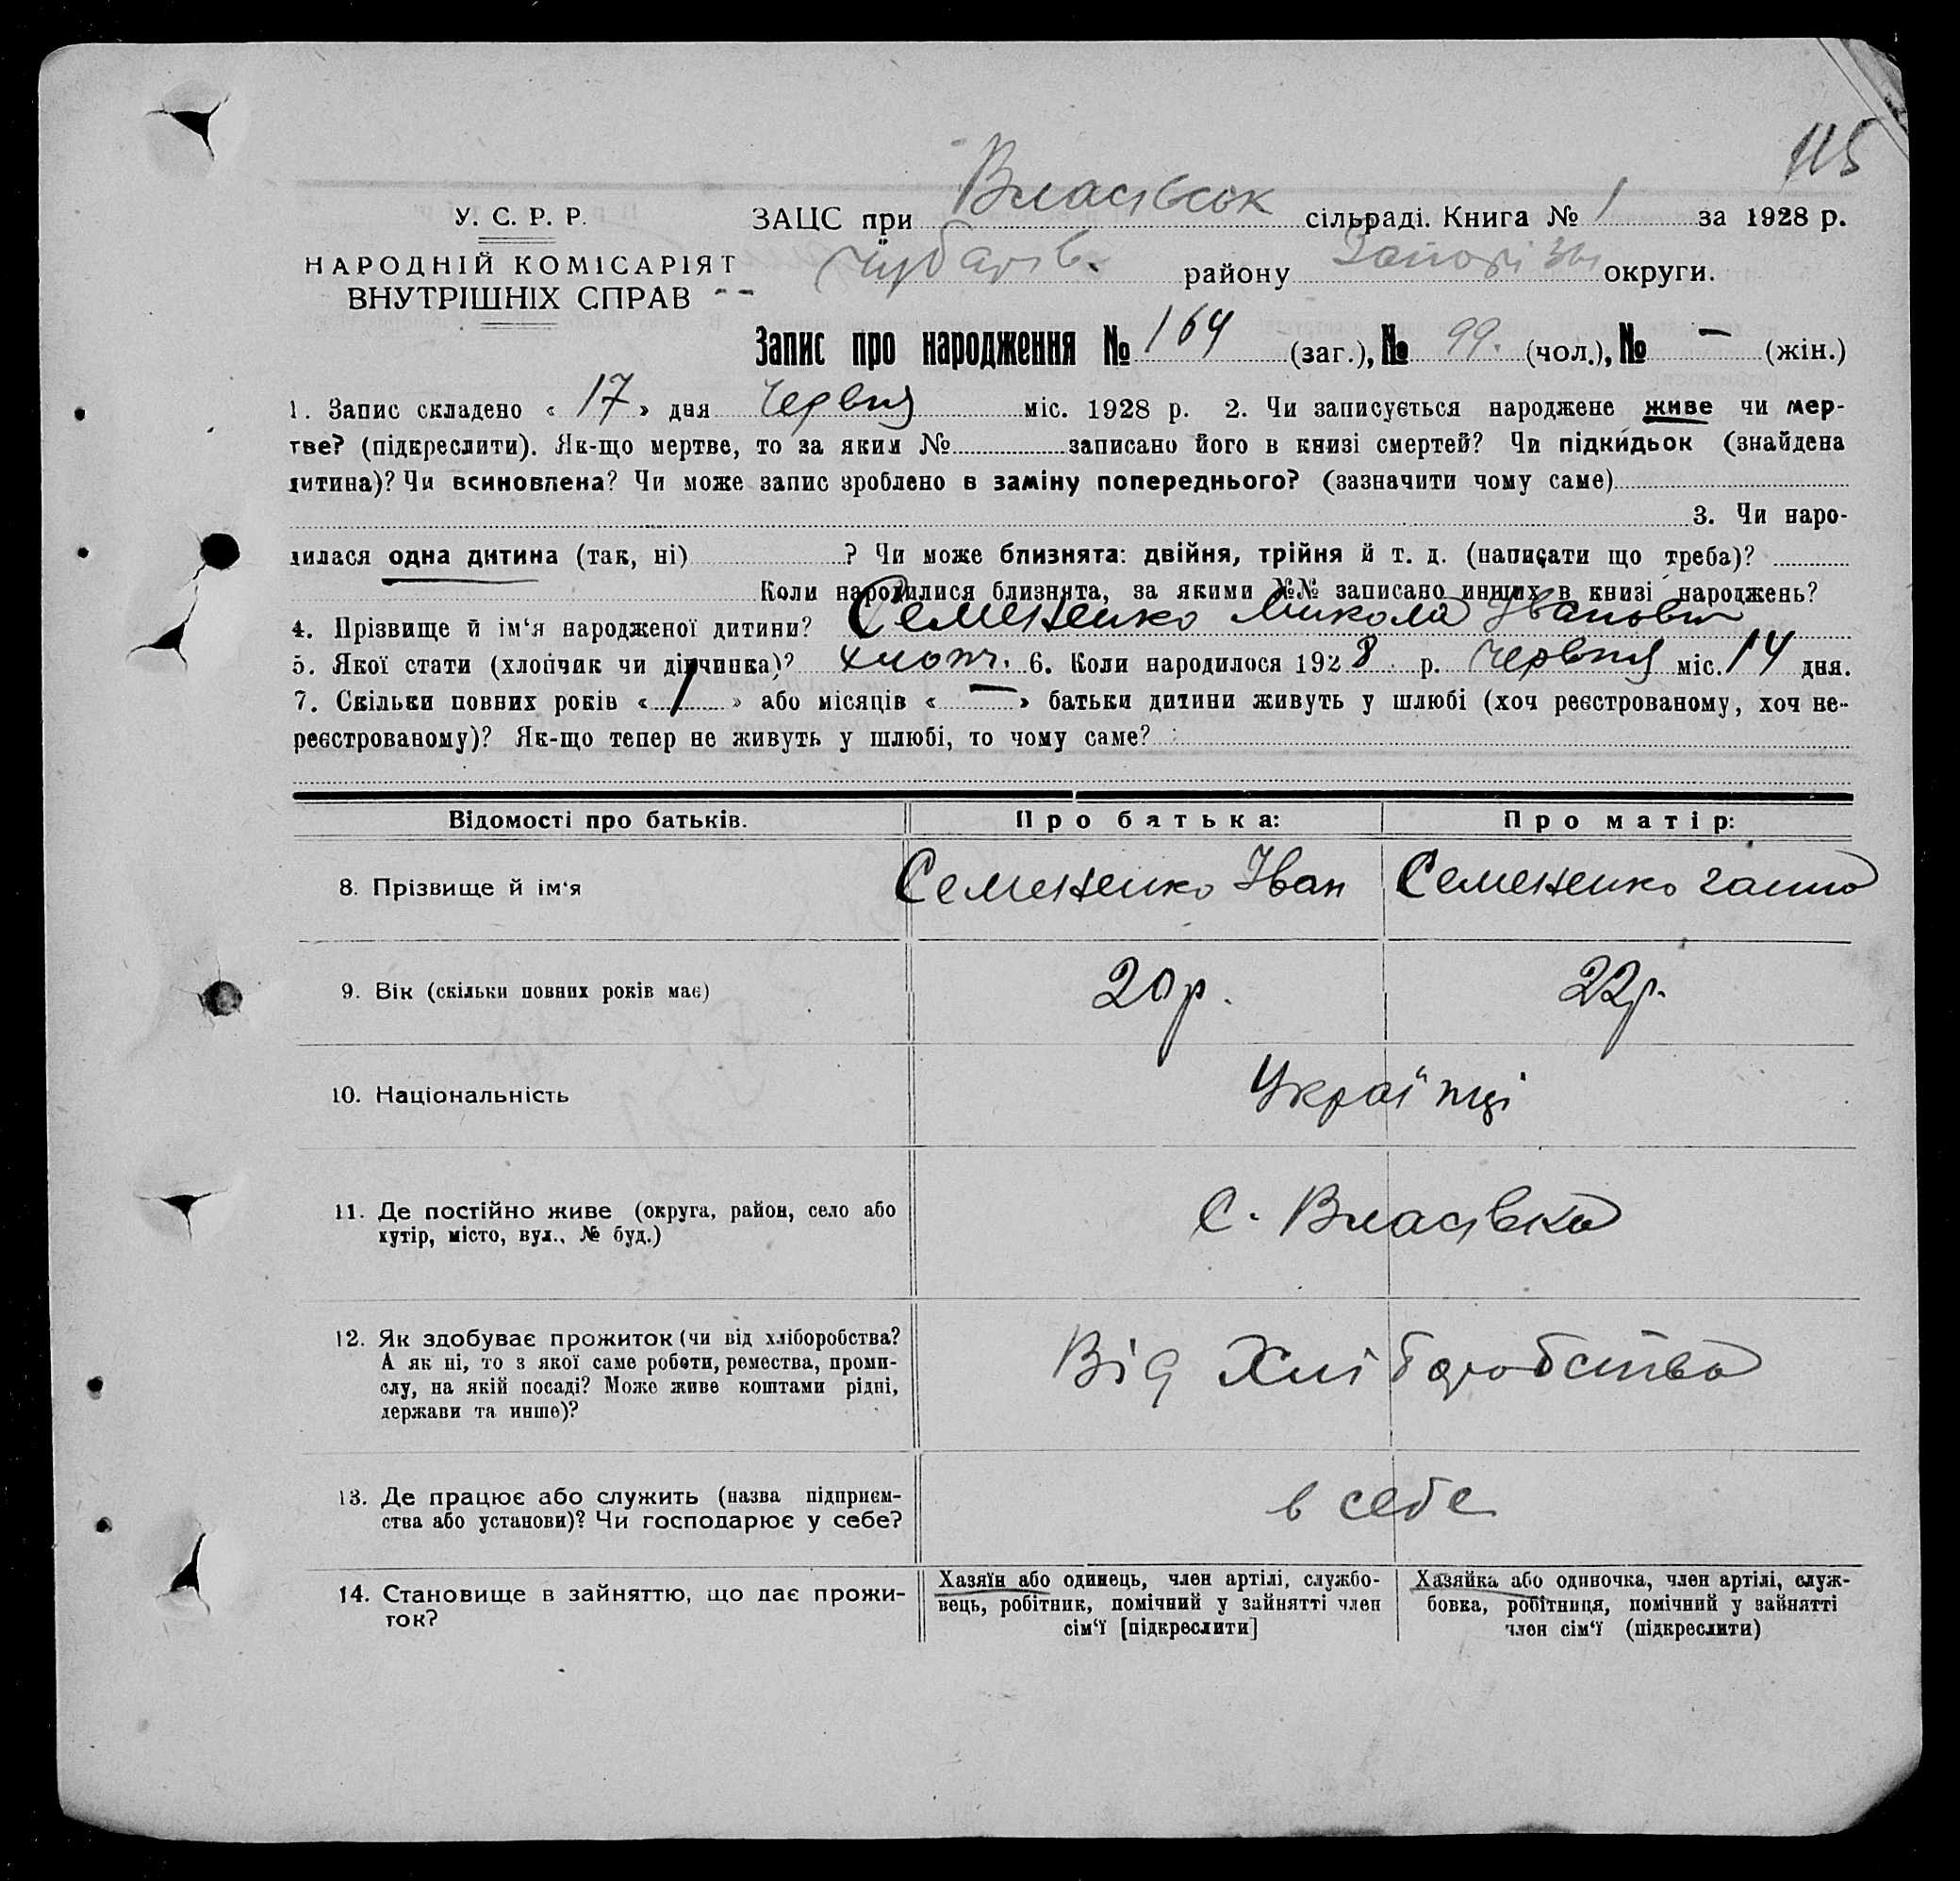 115
У. С. Р. Р.
НАРОДНІЙ КОМІСАРІЯТ
ВНУТРІШНІХ СПРАВ
ЗАЦС при Власівськ сільраді. Книга № 1 за 1928 р.
Чубарів. району Запорізьк округи.
Запис про народження № 164 (заг.), № 99. (чол.), № — (жін.)
1. Запис складено « 17 » дня Червня міс. 1928 р. 2. Чи записується народжене живе чи мер-
тве? (підкреслити). Як-що мертве, то за яким № записано його в книзі смертей? Чи підкидьок (знайдена
дитина)? Чи всиновлена? Чи може запис зроблено в заміну попереднього? (зазначити чому саме)
3. Чи наро-
дилася одна дитина (так, ні) ? Чи може близнята: двійня, трійня й т. д. (написати що треба)?
Коли народилися близнята, за якими №№ записано инших в книзі народжень?
4. Прізвище й ім‘я народженої дитини? Семененко Микола Іванович
5. Якої стати (хлопчик чи дівчинка)? хлопч. 6. Коли народилося 1928 р. Червня міс. 14 дня.
7. Скільки повних років « 1 » або місяців « — » батьки дитини живуть у шлюбі (хоч реєстрованому, хоч не-
реєстрованому)? Як-що тепер не живуть у шлюбі, то чому саме?
Відомості про батьків. Про батька: Про матір:
8. Прізвище й ім‘я Семененко Іван Семененко Ганна
9. Вік (скільки повних років має) 20 р. 22 р.
10. Національність Українці
11. Де постійно живе (округа, район, село або
хутір, місто, вул., № буд.)
с. Власівка
12. Як здобуває прожиток (чи від хліборобства?
А як ні, то з якої саме роботи, ремества, проми-
слу, на якій посаді? Може живе коштами рідні,
держави та инше)?
Від Хліборобства
13. Де працює або служить (назва підприєм-
ства або установи)? Чи господарює у себе?
в себе
14. Становище в зайняттю, що дає прожи-
ток?
Хазяїн або одинець, член артілі, службо-
вець, робітник, помічний у зайнятті член
сім‘ї [підкреслити]
Хазяйка або одиночка, член артілі, служ-
бовка, робітниця, помічний у зайнятті
член сім‘ї (підкреслити)